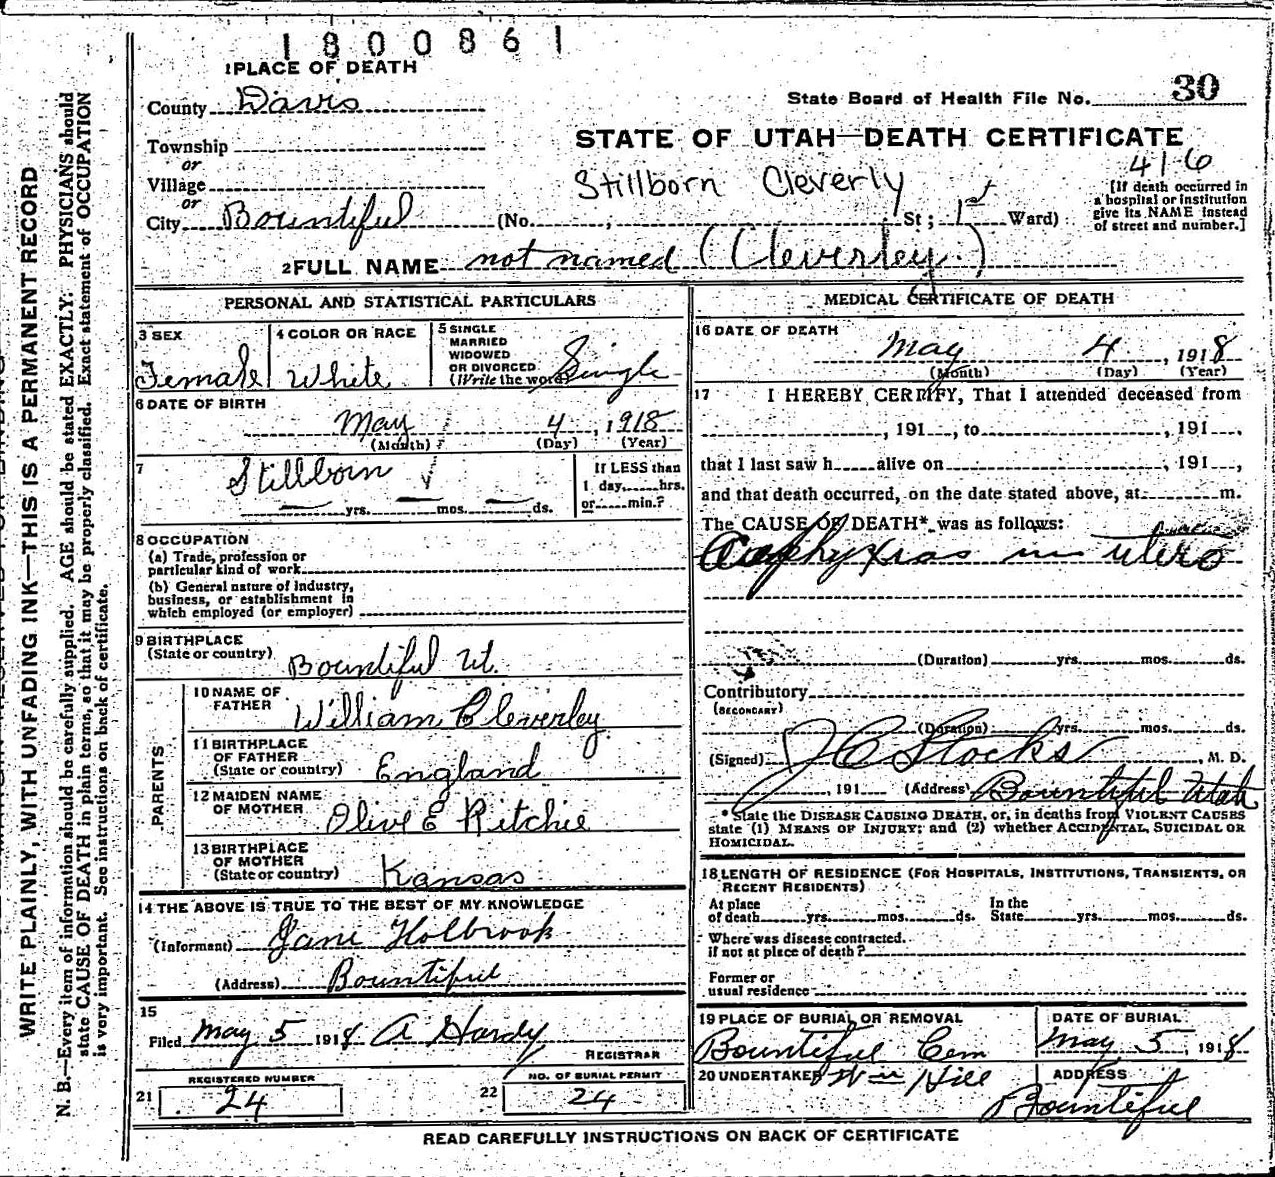 1800861
1 PLACE OF DEATH
County Davis
State Board of Health File No. 30
STATE OF UTAH—DEATH CERTIFICATE
Township
or
Village
or
City Bountiful (No. , St; 1st Ward)
Stillborn Cleverly
416
[If death occurred in
a hospital or institution
give its NAME instead
of street and number.]
2 FULL NAME not named (Cleverley)
PERSONAL AND STATISTICAL PARTICULARS
3 SEX
Female
4 COLOR OR RACE
White
5 SINGLE
MARRIED
WIDOWED
OR DIVORCED
(Write the word) Single
6 DATE OF BIRTH
May 4, 1918
(Month) (Day) (Year)
7
Stillborn
yrs. mos. ds.
If LESS than
1 day, hrs.
or min.?
8 OCCUPATION
(a) Trade, profession or
particular kind of work
(b) General nature of industry,
business, or establishment in
which employed (or employer)
9 BIRTHPLACE
(State or country) Bountiful Ut.
PARENTS
10 NAME OF
FATHER William Cleverley
11 BIRTHPLACE
OF FATHER
(State or country) England
12 MAIDEN NAME
OF MOTHER Olive E Ritchie
13 BIRTHPLACE
OF MOTHER
(State or country) Kansas
14 THE ABOVE IS TRUE TO THE BEST OF MY KNOWLEDGE
(Informant) Jane Holbrook
(Address) Bountiful
15
Filed May 5 1918 A Hardy
REGISTRAR
REGISTERED NUMBER
21 24
NO. OF BURIAL PERMIT
22 24
MEDICAL CERTIFICATE OF DEATH
16 DATE OF DEATH
May 4, 1918
(Month) (Day) (Year)
17 I HEREBY CERTIFY, That I attended deceased from
, 191 , to , 191 ,
that I last saw h alive on , 191 ,
and that death occurred, on the date stated above, at m.
The CAUSE OF DEATH* was as follows:
in utero
(Duration) yrs. mos. ds.
Contributory
(SECONDARY)
(Duration) yrs. mos. ds.
(Signed) J C Stocks, M. D.
, 191 (Address) Bountiful Utah
*State the DISEASE CAUSING DEATH, or, in deaths from VIOLENT CAUSES
state (1) MEANS OF INJURY; and (2) whether ACCIDENTAL, SUICIDAL OR
HOMICIDAL.
18 LENGTH OF RESIDENCE (FOR HOSPITALS, INSTITUTIONS, TRANSIENTS, OR
RECENT RESIDENTS)
At place
of death yrs. mos. ds.
In the
State yrs. mos. ds.
Where was disease contracted.
if not at place of death?
Former or
usual residence
19 PLACE OF BURIAL OR REMOVAL
Bountiful Cem
DATE OF BURIAL
May 5, 1918
20 UNDERTAKER Wm Hill
ADDRESS
Bountiful
READ CAREFULLY INSTRUCTIONS ON BACK OF CERTIFICATE
WRITE PLAINLY, WITH UNFADING INK—THIS IS A PERMANENT RECORD
N. B.—Every item of information should be carefully supplied. AGE should be stated EXACTLY. PHYSICIANS should
state CAUSE OF DEATH in plain terms, so that it may be properly classified. Exact statement of OCCUPATION
is very important. See instructions on back of certificate.